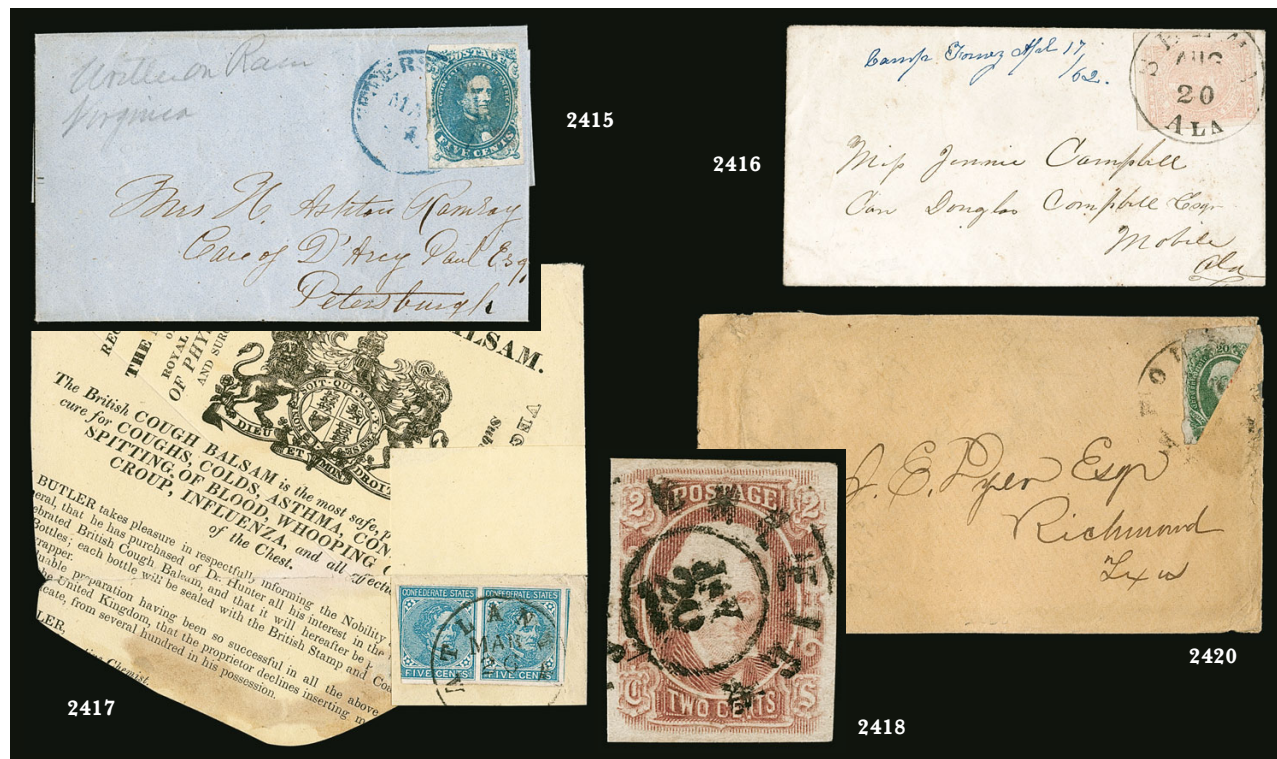 Written on Ram
Virginia
PETERS
MA
POSTAGE
FIVE CENTS
2415
Mrs H. Ashton Ramsay
Care of D'Arcy Paul Esq
Petersburgh
Camp Toney Apl 17
/62.
AUG
20
ALA
2416
Miss Jennie Campbell
Care Douglas Campbell Esqr
Mobile
Ala
BALSAM.
REG
THE
ROYAL
OF PHY
AND SURG
DIEU ET MON DROIT
The British COUGH BALSAM is the most safe, p
cure for COUGHS, COLDS, ASTHMA, CON
SPITTING OF BLOOD, WHOOPING C
CROUP, INFLUENZA, and all affectio
of the Chest.
BUTLER takes pleasure in respectfully informing the Nobility
eral, that he has purchased of Dr. Hunter all his interest in the
ebrated British Cough Balsam, and that it will hereafter be
Bottles; each bottle will be sealed with the British Stamp and Coa
rapper.
luable preparation having been so successful in all the above
the United Kingdom, that the proprietor declines inserting m
icate, from several hundred in his possession.
LER,
Chemist.
CONFEDERATE STATES
CONFEDERATE STATES
ATLAN
MAR
FIVE CENTS
FIVE CENTS
2417
2 POSTAGE 2
TWO CENTS
2418
HOU
20
J. E. Dyer Esqr
Richmond
Texas
2420